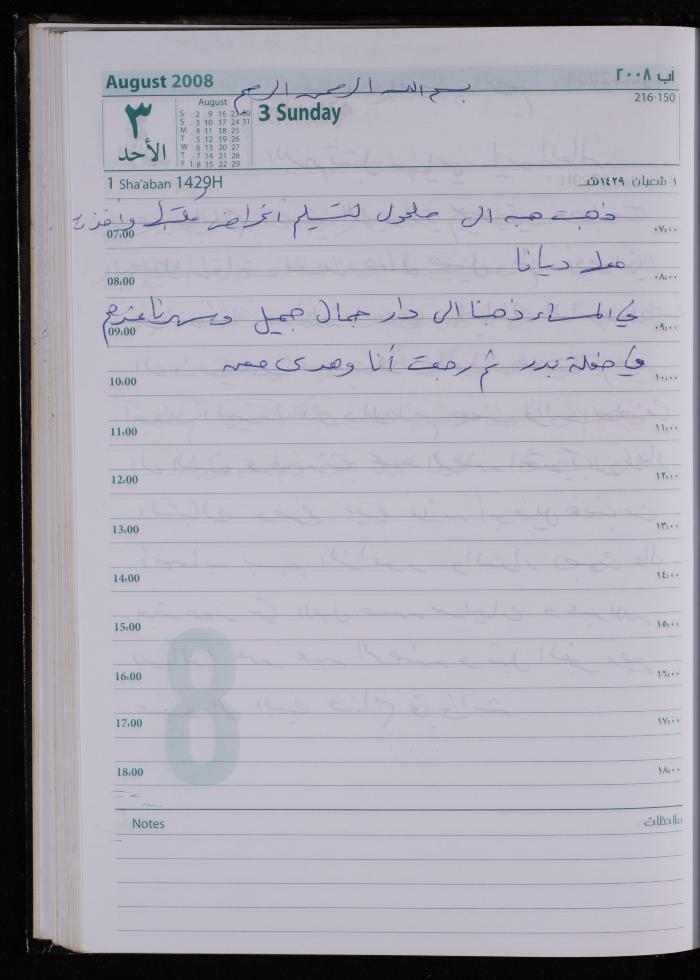 August 2008
آب ٢٠٠٨
بسم الله الرحمن الرحيم
216-150
٣
الأحد
August
S 2 9 16 23 30
S 3 10 17 24 31
M 4 11 18 25
T 5 12 19 26
W 6 13 20 27
T 7 14 21 28
F 1 8 15 22 29
3 Sunday
1 Sha'aban 1429H
١ شعبان ١٤٢٩هـ
ذهبت هبه الى حلحول لتسليم اغراض وأخذت
07:00
٠٧:٠٠
معها ديانا
08:00
٠٨:٠٠
في المساء ذهبنا الى دار جمال جميل وسهرنا عندهم
09:00
٠٩:٠٠
في حفلة بدر ثم رجعت أنا وهدى معه
10:00
١٠:٠٠
11:00
١١:٠٠
12:00
١٢:٠٠
13:00
١٣:٠٠
14:00
١٤:٠٠
15:00
١٥:٠٠
16:00
١٦:٠٠
17:00
١٧:٠٠
18:00
١٨:٠٠
8
Notes
ملاحظات